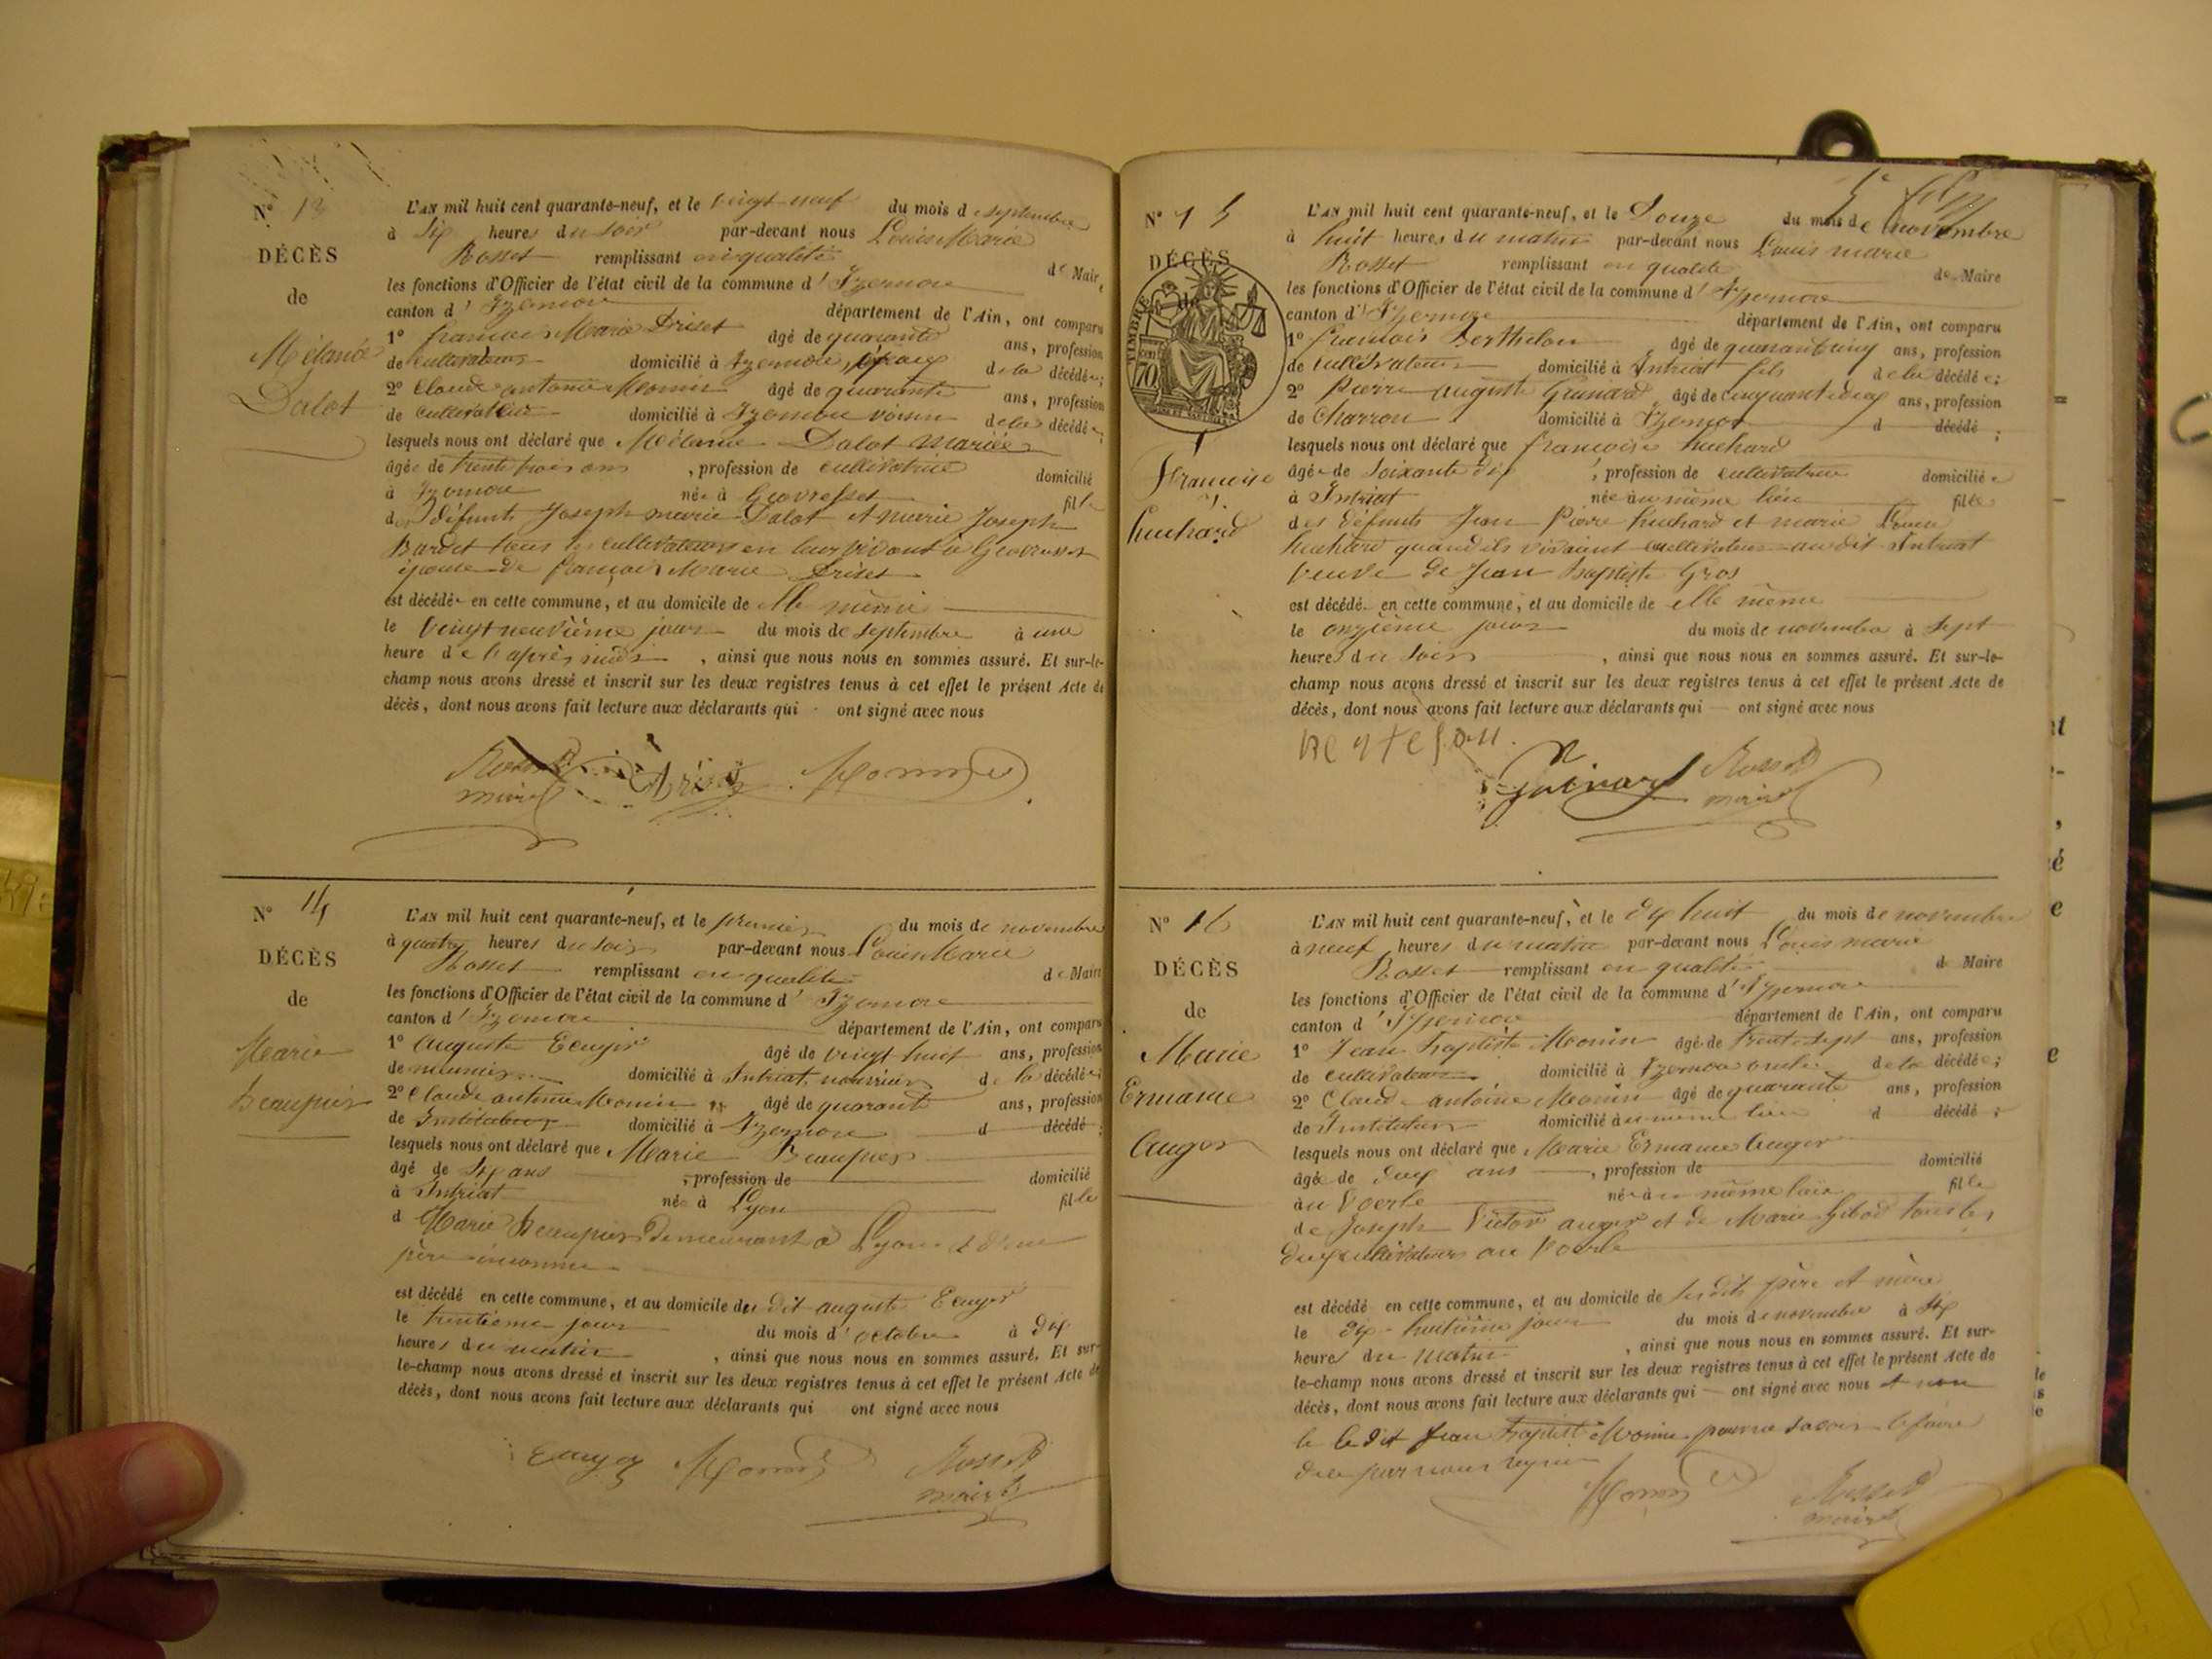 N° 13
DÉCÈS
de
Mélanie
Dalot
L'AN mil huit cent quarante-neuf, et le vingt neuf du mois de septembre
à Six heures du soir par-devant nous Louis Marie
Rosset remplissant en qualité de Maire
les fonctions d'Officier de l'état civil de la commune d'Izernore
canton d'Izernore département de l'Ain, ont comparu
1° françois Marie Driset âgé de quarante ans, profession
de cultivateur domicilié à Izernore, époux de la décédée;
2° Claude antoine Monin âgé de quarante ans, profession
de cultivateur domicilié à Izernore voisin de la décédée;
lesquels nous ont déclaré que Mélanie Dalot mariée
âgée de trente trois ans, profession de cultivatrice domicilié
à Izernore née à Geovresset fille
des défunts Joseph marie Dalot et marie Joseph
Bardet tous les cultivateurs en leur vivant à Geovresset
épouse de françois Marie Driset
est décédée en cette commune, et au domicile de elle même
le vingt neuvième jour du mois de septembre à une
heure de l'après midi, ainsi que nous nous en sommes assuré. Et sur-le-
champ nous avons dressé et inscrit sur les deux registres tenus à cet effet le présent Acte de
décès, dont nous avons fait lecture aux déclarants qui ont signé avec nous
Rosset Monin
maire
N° 14
DÉCÈS
de
Marie
Beaupier
L'AN mil huit cent quarante-neuf, et le premier du mois de novembre
à quatre heures du soir par-devant nous Louis Marie
Rosset remplissant en qualité de Maire
les fonctions d'Officier de l'état civil de la commune d'Izernore
canton d'Izernore département de l'Ain, ont comparu
1° Auguste Ecuyer âgé de vingt huit ans, profession
de meunier domicilié à Intriat, nourricier de la décédée;
2° Claude antoine Monin âgé de quarante ans, profession
de Instituteur domicilié à Izernore d décédé;
lesquels nous ont déclaré que Marie Beaupier
âgé de Six ans, profession de domicilié
à Intriat née à Lyon fille
d Marie Beaupier Demeurant à Lyon et d'un
père inconnu
est décédé en cette commune, et au domicile du dit auguste Ecuyer
le trentième jour du mois d'octobre à dix
heures du matin, ainsi que nous nous en sommes assuré. Et sur-
le-champ nous avons dressé et inscrit sur les deux registres tenus à cet effet le présent Acte de
décès, dont nous avons fait lecture aux déclarants qui ont signé avec nous
Ecuyer Monin Rosset
maire
N° 15
DÉCÈS
de
TIMBRE
70
Françoise
huchard
L'AN mil huit cent quarante-neuf, et le Douze du mois de novembre
à huit heures du matin par-devant nous Louis marie
Rosset remplissant en qualité de Maire
les fonctions d'Officier de l'état civil de la commune d'Izernore
canton d'Izernore département de l'Ain, ont comparu
1° françois Berthelon âgé de quarant cinq ans, profession
de cultivateur domicilié à Intriat fils de la décédée;
2° Pierre auguste Guinard, âgé de cinquante deux ans, profession
de Charron domicilié à Izernore d décédé;
lesquels nous ont déclaré que françoise huchard
âgée de Soixante dix, profession de cultivatrice domiciliée
à Intriat née au même lieu fille
des défunts Jean Pierre huchard et marie
huchard quand ils vivaient cultivateurs au dit Intriat
veuve de Jean Baptiste Gros
est décédé en cette commune, et au domicile de elle même
le onzième jour du mois de novembre à Sept
heures du Soir, ainsi que nous nous en sommes assuré. Et sur-le-
champ nous avons dressé et inscrit sur les deux registres tenus à cet effet le présent Acte de
décès, dont nous avons fait lecture aux déclarants qui ont signé avec nous
guinard Rosset
maire
N° 16
DÉCÈS
de
Marie
Ermance
Auger
L'AN mil huit cent quarante-neuf, et le dix huit du mois de novembre
à neuf heures du matin par-devant nous Louis marie
Rosset remplissant en qualité d Maire
les fonctions d'Officier de l'état civil de la commune d'Izernore
canton d'Izernore département de l'Ain, ont comparu
1° Jean Baptiste Monin âgé de trente sept ans, profession
de cultivateur domicilié à Izernore oncle de la décédée;
2° Claude antoine Monin âgé de quarante ans, profession
de Instituteur domicilié au même lieu d décédé;
lesquels nous ont déclaré que Marie Ermance Auger
âgée de deux ans, profession de domicilié
au Voerle née au même lieu fille
de Joseph Victor auger et de Marie Gibod tous les
deux cultivateurs au Voerle
est décédé en cette commune, et au domicile de ses dits père et mère
le dix huitième jour du mois de novembre à Six
heures du matin, ainsi que nous nous en sommes assuré. Et sur-
le-champ nous avons dressé et inscrit sur les deux registres tenus à cet effet le présent Acte de
décès, dont nous avons fait lecture aux déclarants qui ont signé avec nous et non
le dit Jean Baptiste Monin pour ne savoir le faire
de ce par nous requis
Monin Rosset
maire